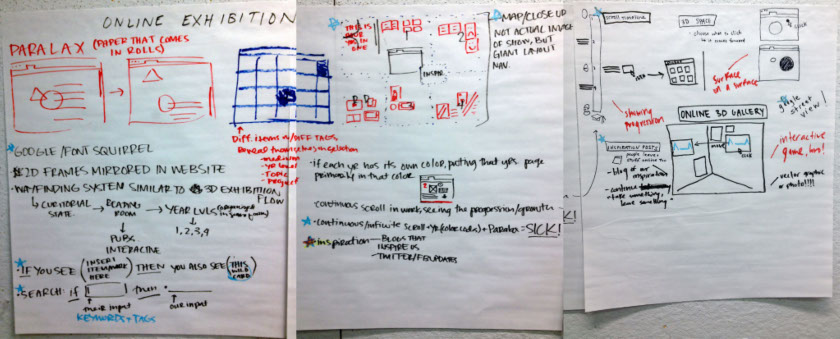 ONLINE EXHIBITION
PARALAX (PAPER THAT COMES
IN ROLLS)
Diff. items w/ DIFF TAGS
GOOGLE/FONT SQUIRREL
2D FRAMES MIRRORED IN WEBSITE
WAYFINDING SYSTEM SIMILAR TO 3D EXHIBITION
FLOW
CURATORIAL
STATE.
READING
ROOM
YEAR LVLS
1, 2, 3, 4
PUBS.
INTERACTIVE
IF YOU SEE (INSERT
ITEM NAME
HERE) THEN YOU ALSO SEE (THIS
WILD
CARD)
SEARCH: if then
their input
our input
KEYWORDS + TAGS
MAP/CLOSE UP
NOT ACTUAL IMAGE
OF SHOW, BUT
GIANT LAYOUT
NAV.
THIS IS
if each yr has its own color, putting that yrs. page
primarily in that color
continuous scroll in work, seeing the progression/growth
continuous/infinite scroll + yr (color codes) + Paralax = SICK!
inspiration — BLOGS THAT
INSPIRE US
TWITTER/FB UPDATES
3D SPACE
choose what to click
CLICK
showing
progression
surface
on a surface
google
street
view!
ONLINE 3D GALLERY
MOVE
CLICK
INSPIRATION POSTS
blog of our
inspiration
continue
take something,
leave something
interactive
game, bros!
vector graphic
or photo!!!!